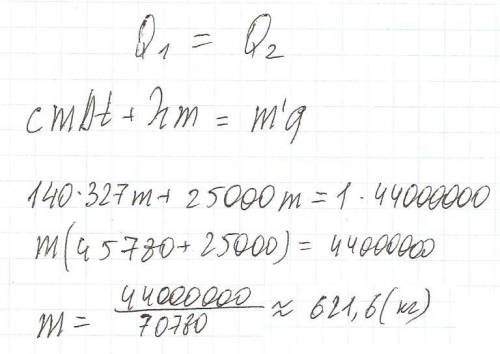 Q₁ = Q₂
cmΔt + λm = m'q
140·327m + 25000m = 1·44000000
m(45780 + 25000) = 44000000
m = 44000000/70780 ≈ 621,6 (кг)